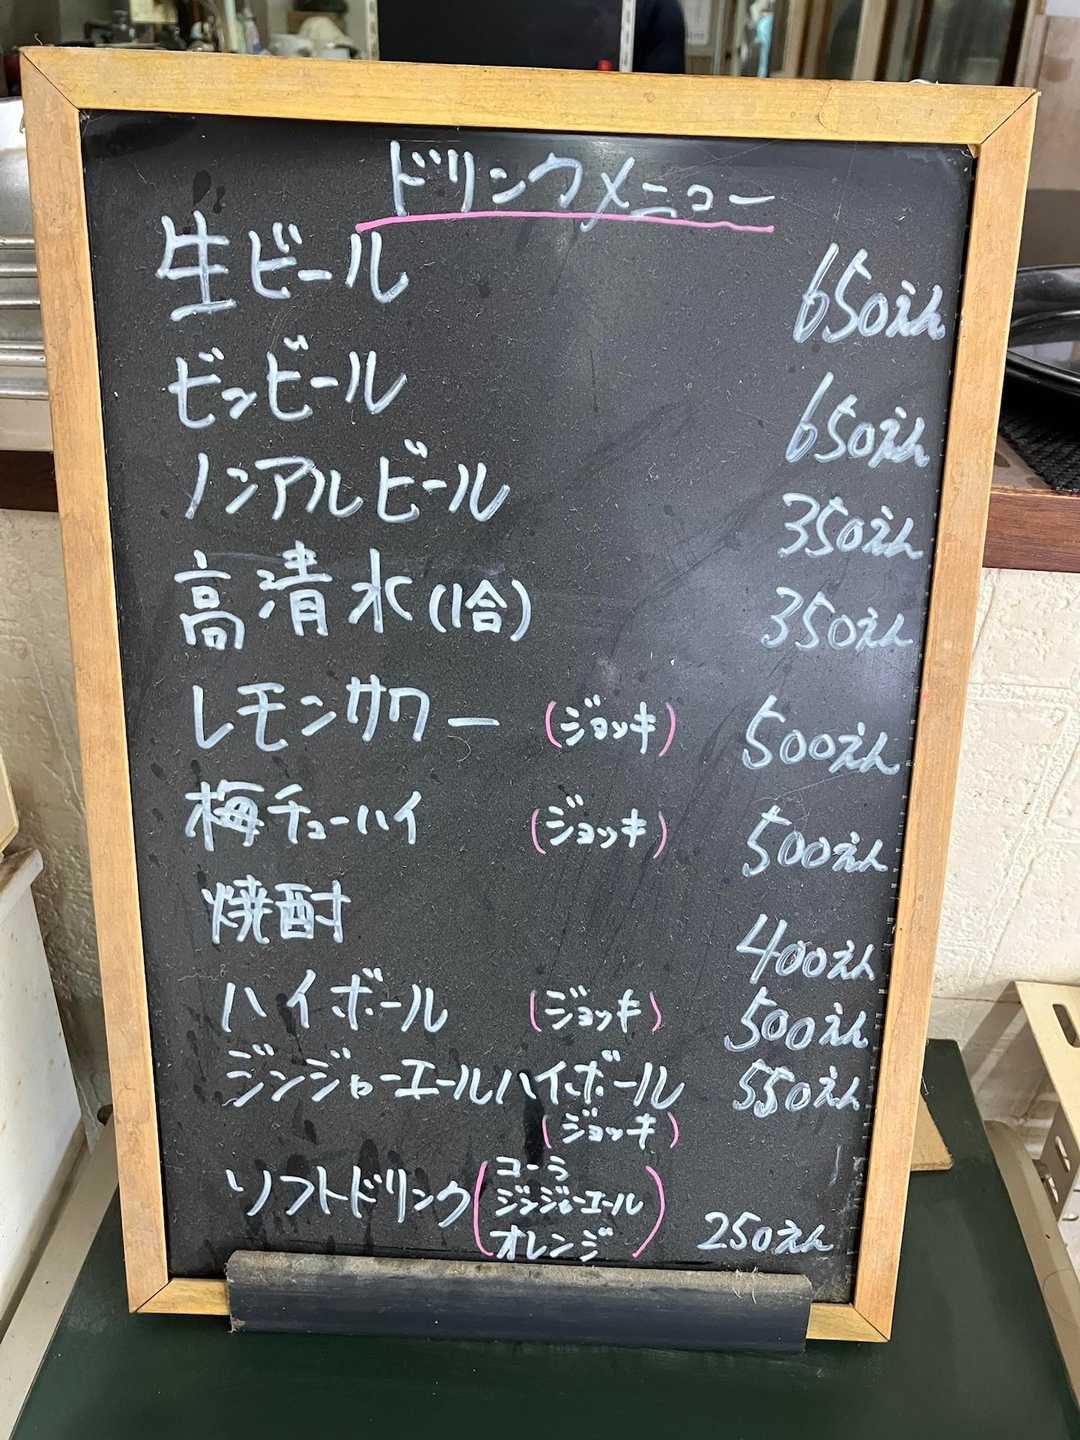 ドリンクメニュー
生ビール 650えん
ビンビール 650えん
ノンアルビール 350えん
高清水(1合) 350えん
レモンサワー (ジョッキ) 500えん
梅チューハイ (ジョッキ) 500えん
焼酎 400えん
ハイボール (ジョッキ) 500えん
ジンジャーエールハイボール 550えん
(ジョッキ)
ソフトドリンク(コーラ
ジンジャーエール
オレンジ) 250えん